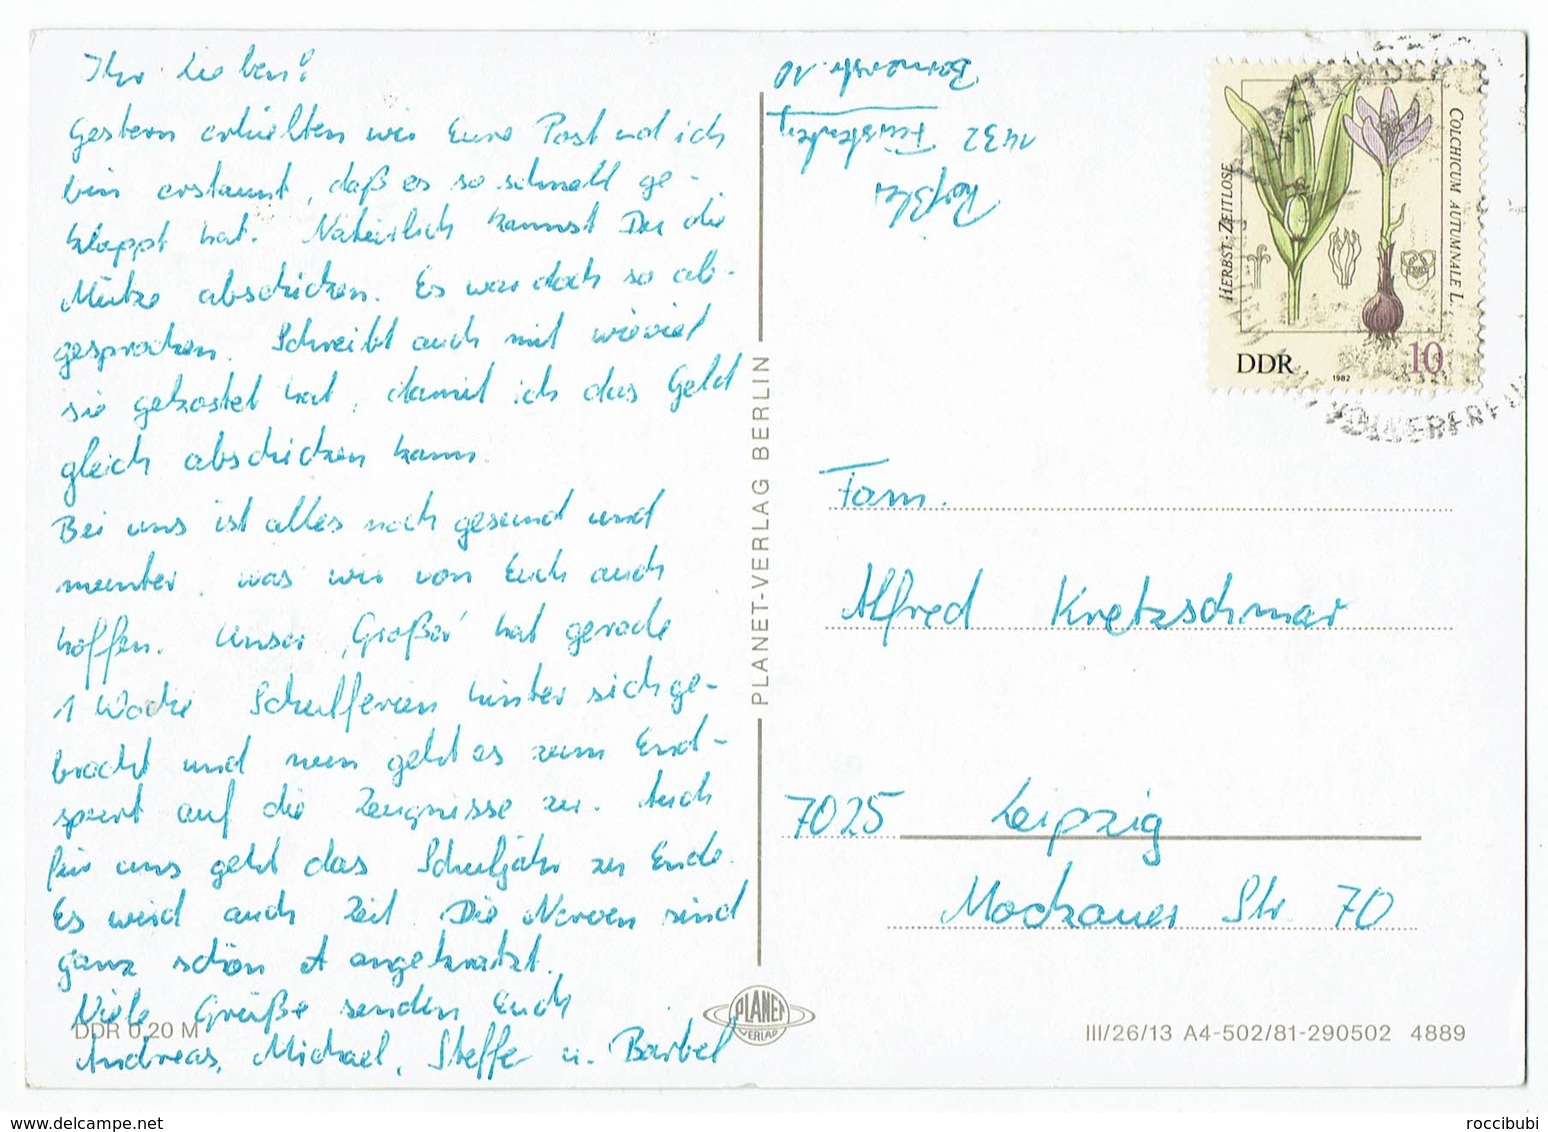 Ihr Lieben!
Gestern erhielten wir Eure Post und ich
bin erstaunt, daß es so schnell ge-
klappt hat. Natürlich kannst Du die
Mütze abschicken. Es war doch so ab-
gesprochen. Schreibt auch mit wieviel
sie gekostet hat, damit ich das Geld
gleich abschicken kann.
Bei uns ist alles noch gesund und
munter, was wir von Euch auch
hoffen. Unser ‚Großer' hat gerade
1 Woche Schulferien hinter sich ge-
bracht und nun geht es zum End-
spurt auf die Zeugnisse zu. Auch
für uns geht das Schuljahr zu Ende.
Es wird auch Zeit. Die Nerven sind
ganz schön angekratzt.
Viele Grüße senden Euch
Andreas, Michael, Steffe u. Bärbel
DDR 0,20 M
PLANET-VERLAG BERLIN
PLANET
VERLAG
1432 Fürstenberg
HERBST-ZEITLOSE
COLCHICUM AUTUMNALE L.
DDR
1982
10
Fam.
Alfred Kretzschmar
7025 Leipzig
Mockauer Str. 70
III/26/13 A4-502/81-290502 4889
roccibubi